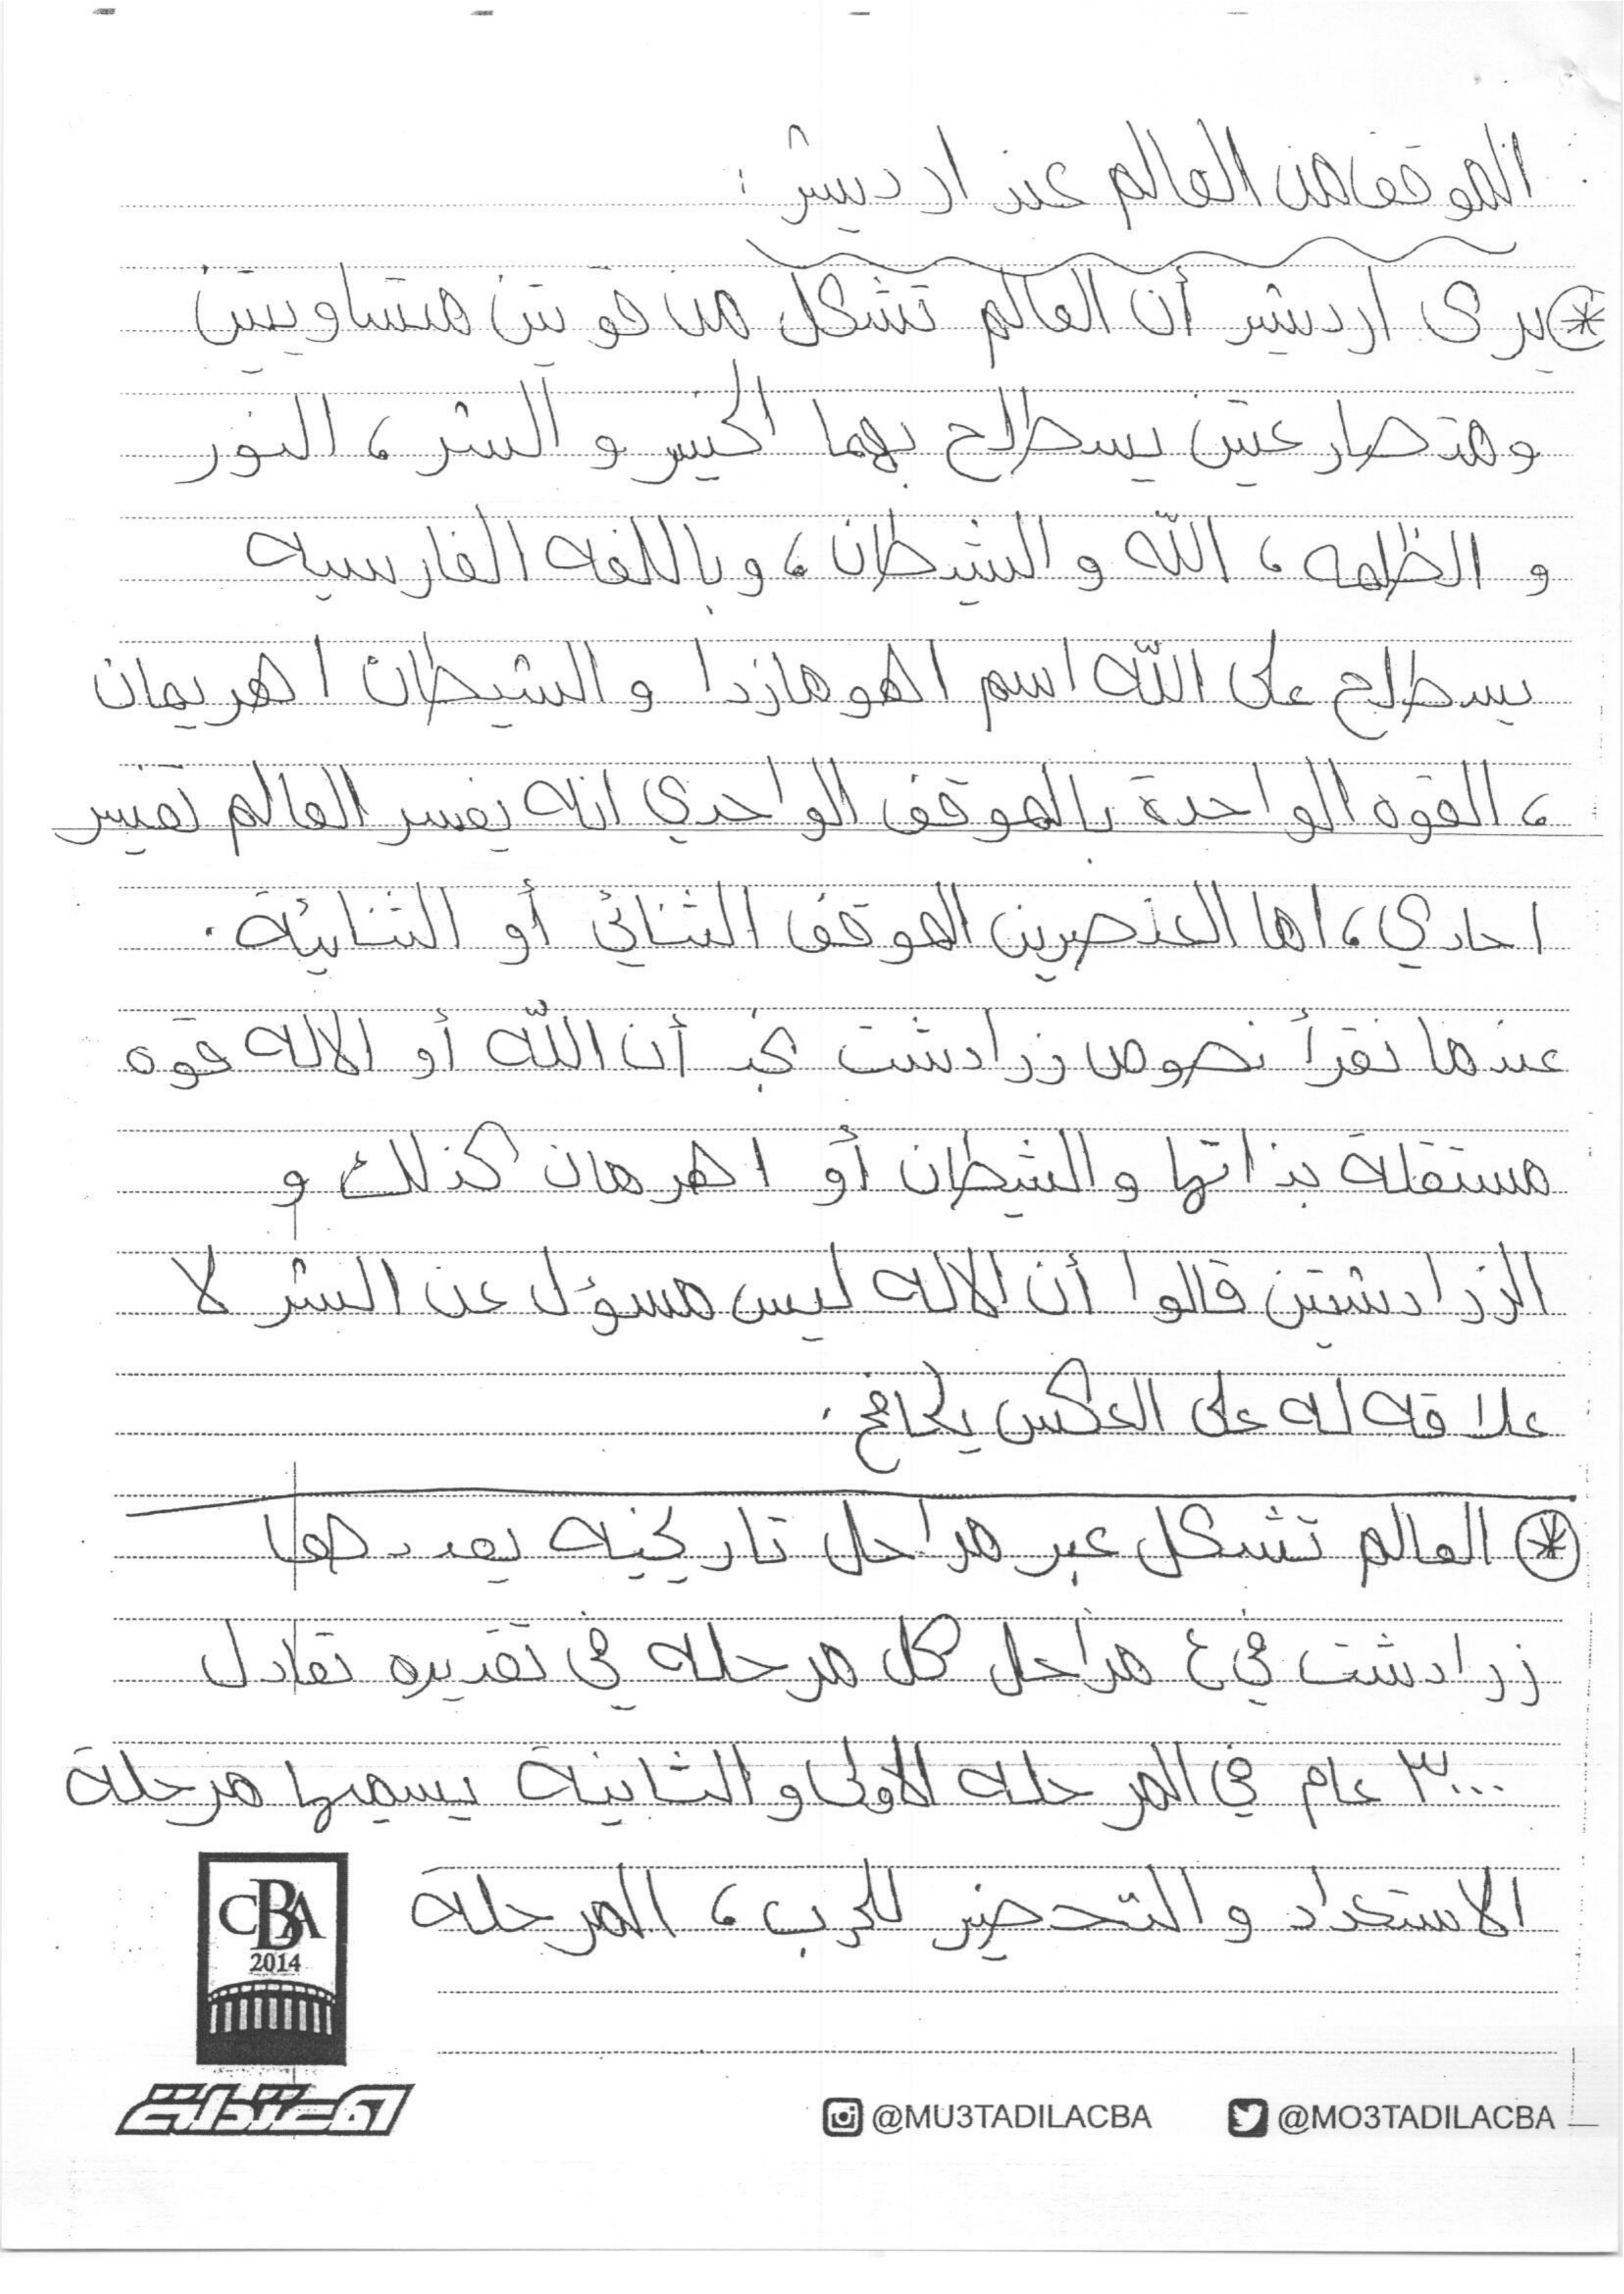 الموقف من العالم عند اردبيش:
* يرى اردشير أن العالم تشكل من قوتين متساويتين
ومتصارعتين يسطلح بهما الخير و الشر، النور
و الظلمه، اللّه و الشيطان، وباللغه الفارسيه
يسطلح على اللّه اسم اهومازدا و الشيطان اهريمان
، القوه الواحدة بالموقف الواحدي انه يفسر العالم تفسير
احادي، اما العنصرين الموقف الثنائي أو الثنائية.
عندما نقرأ نصوص زرادشت نجد أن اللّه أو الاله قوه
مستقلة بذاتها و الشيطان أو اهرمان كذلك و
الزرادشتين قالوا أن الاله ليس مسؤل عن الشر لا
علاقه له على العكس يكافح.
* العالم تشكل عبر مراحل تاريخيه يعددها
زرادشت في ٤ مراحل كل مرحله في تقديره تعادل
٣٠٠٠ عام في المرحله الأولى و الثانية يسميها مرحلة
الاستعداد و التحضير للحرب، المرحلة
CBA
2014
المعتدلة
@MU3TADILACBA @MO3TADILACBA